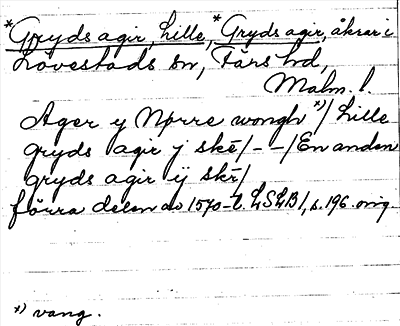 *Gryds agir, Lille, *Gryds agir, åkrar i
Lövestads sn, Färs hd,
Malm. l.
Ager y Nørre wongh *)/ Lille
gryds agir j skē/ - - / En anden
gryds agir ij skē/
förra delen av 1570-t. LSLB 1, s. 196. orig.
*) vang.